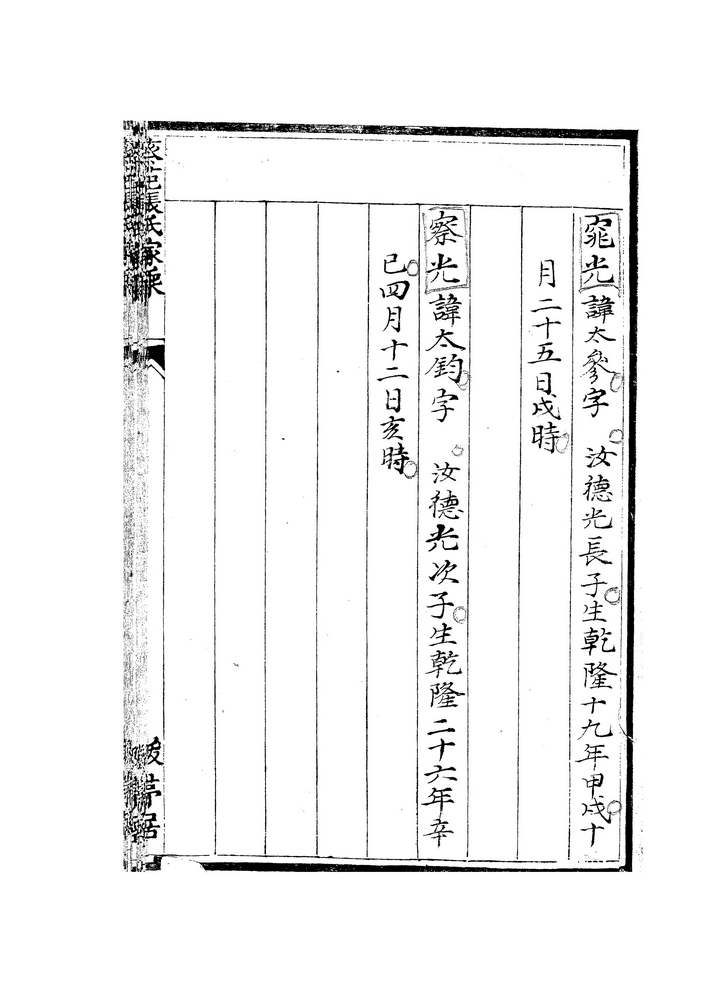 窕光諱太參字 汝德光長子生乾隆十九年甲戌十
月二十五日戌時
察光諱太鈞字 汝德光次子生乾隆二十六年辛
巳四月十二日亥時
張氏家乘
亭居